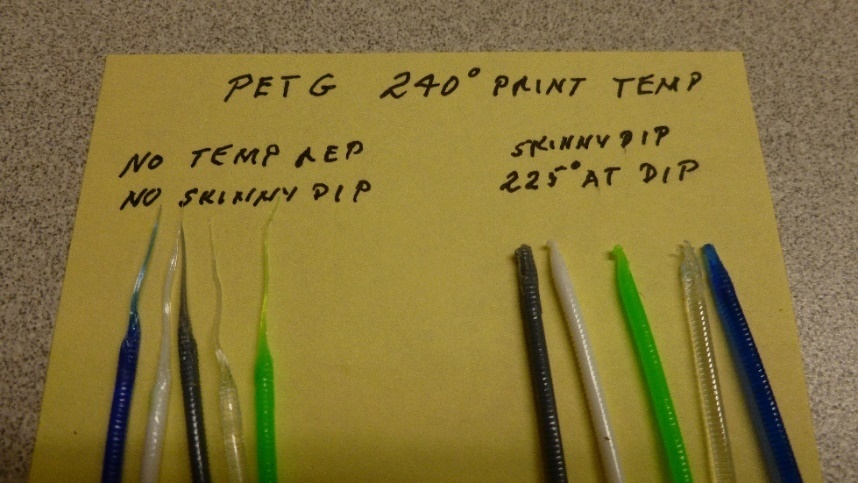 PETG 240° PRINT TEMP
NO TEMP RED
NO SKINNY DIP
SKINNY DIP
225° AT DIP